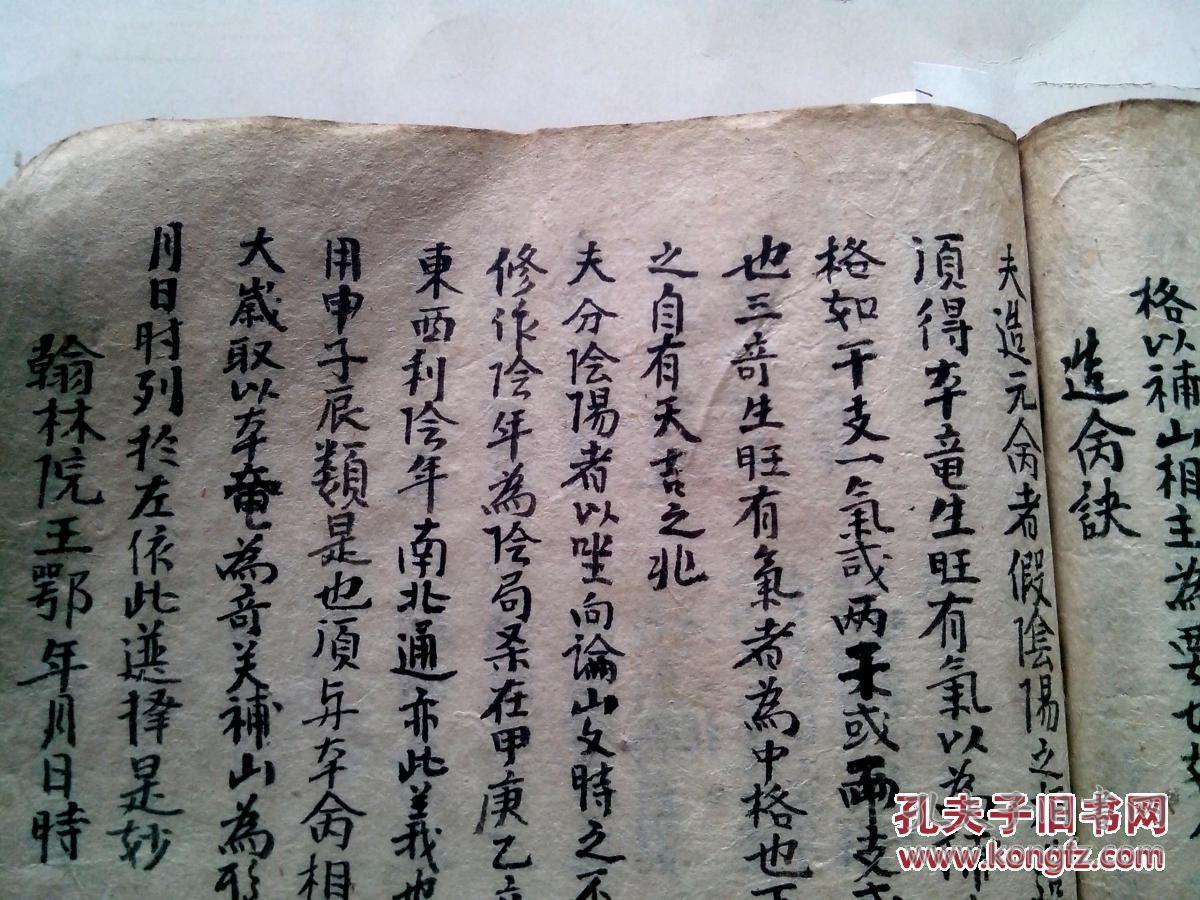 格以補山相主為要也
造禽訣
夫造元禽者假陰陽之
須得本竜生旺有氣以為
格如干支一氣或兩干或兩支
也三奇生旺有氣者為中格也下
之自有天吉之兆
夫分陰陽者以坐向論山文時之不
修作陰年為陰局系在甲庚乙辛
東西利陰年南北通亦此義也
用申子辰類是也須與本禽相
大嵗取以本竜為奇关補山為
月日时列於左依此選择是妙
翰林院王鄂年月日時
孔夫子旧书网
www.kongfz.com